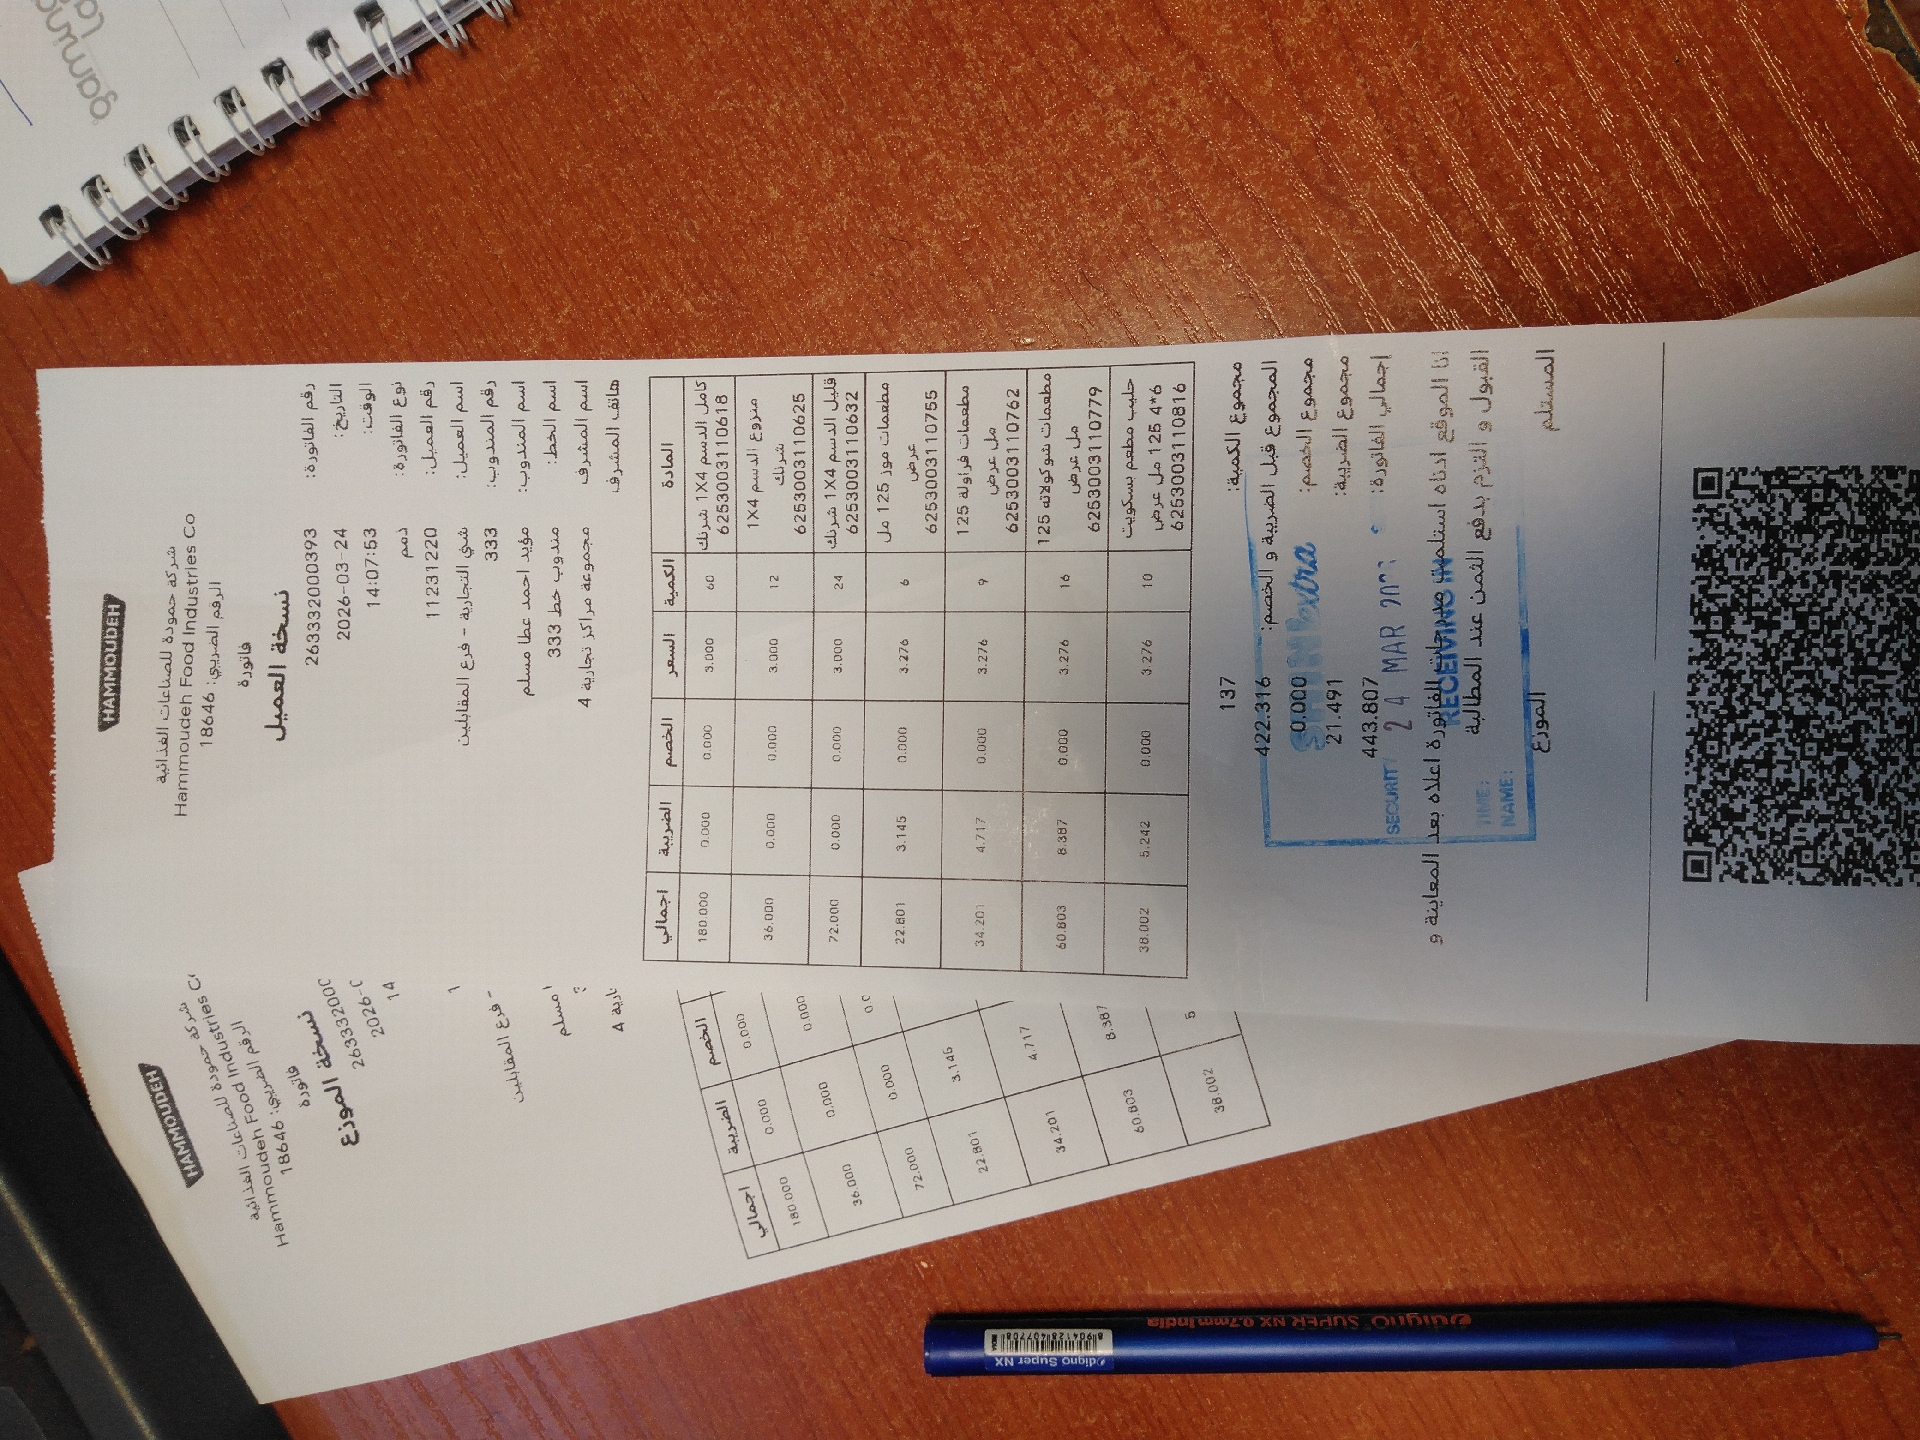 HAMMOUDEH
شركة حمودة للصناعات الغذائية
Hammoudeh Food Industries Co
الرقم الضريبي: 18646
فاتورة
نسخة العميل
رقم الفاتورة: 263332000393
التاريخ: 2026-03-24
الوقت: 14:07:53
نوع الفاتورة: ذمم
رقم العميل: 11231220
اسم العميل: شني التجارية - فرع المقابلين
رقم المندوب: 333
اسم المندوب: مؤيد احمد عطا مسلم
اسم الخط: مندوب خط 333
اسم المشرف مجموعة مراكز تجارية 4
هاتف المشرف
المادة الكمية السعر الخصم الضريبة اجمالي
كامل الدسم 1X4 شرنك 6253003110618 60 3.000 0.000 0.000 180.000
منزوع الدسم 1X4 شرنك 6253003110625 12 3.000 0.000 0.000 36.000
قليل الدسم 1X4 شرنك 6253003110632 24 3.000 0.000 0.000 72.000
مطعمات موز 125 مل عرض 6253003110755 6 3.276 0.000 3.145 22.801
مطعمات فراولة 125 مل عرض 6253003110762 9 3.276 0.000 4.717 34.201
مطعمات شوكولاته 125 مل عرض 6253003110779 16 3.276 0.000 8.387 60.803
حليب مطعم بسكويت 6*4 125 مل عرض 6253003110816 10 3.276 0.000 5.242 38.002
مجموع الكمية: 137
المجموع قبل الضريبة و الخصم: 422.316
مجموع الخصم: 0.000
مجموع الضريبة: 21.491
اجمالي الفاتورة: 443.807
انا الموقع ادناه استلمت الفاتورة اعلاه بعد المعاينة و
القبول و التزم بدفع الثمن عند المطالبة
المستلم الموزع
extra
SECURITY 24 MAR
RECEIVING
TIME:
NAME:
HAMMOUDEH
شركة حمودة للصناعات الغذائية
Hammoudeh Food Industries C
الرقم الضريبي: 18646
فاتورة
نسخة الموزع
26333200
2026-
14
- فرع المقابلين
مسلم
ارية 4
الخصم الضريبة اجمالي
0.000 0.000 180.000
0.000 0.000 36.000
0.0 0.000 72.000
3.145 22.801
4.717 34.201
8.387 60.803
5 38.002
digno SUPER NX 0.7mm India
digno Super NX
8904128407708